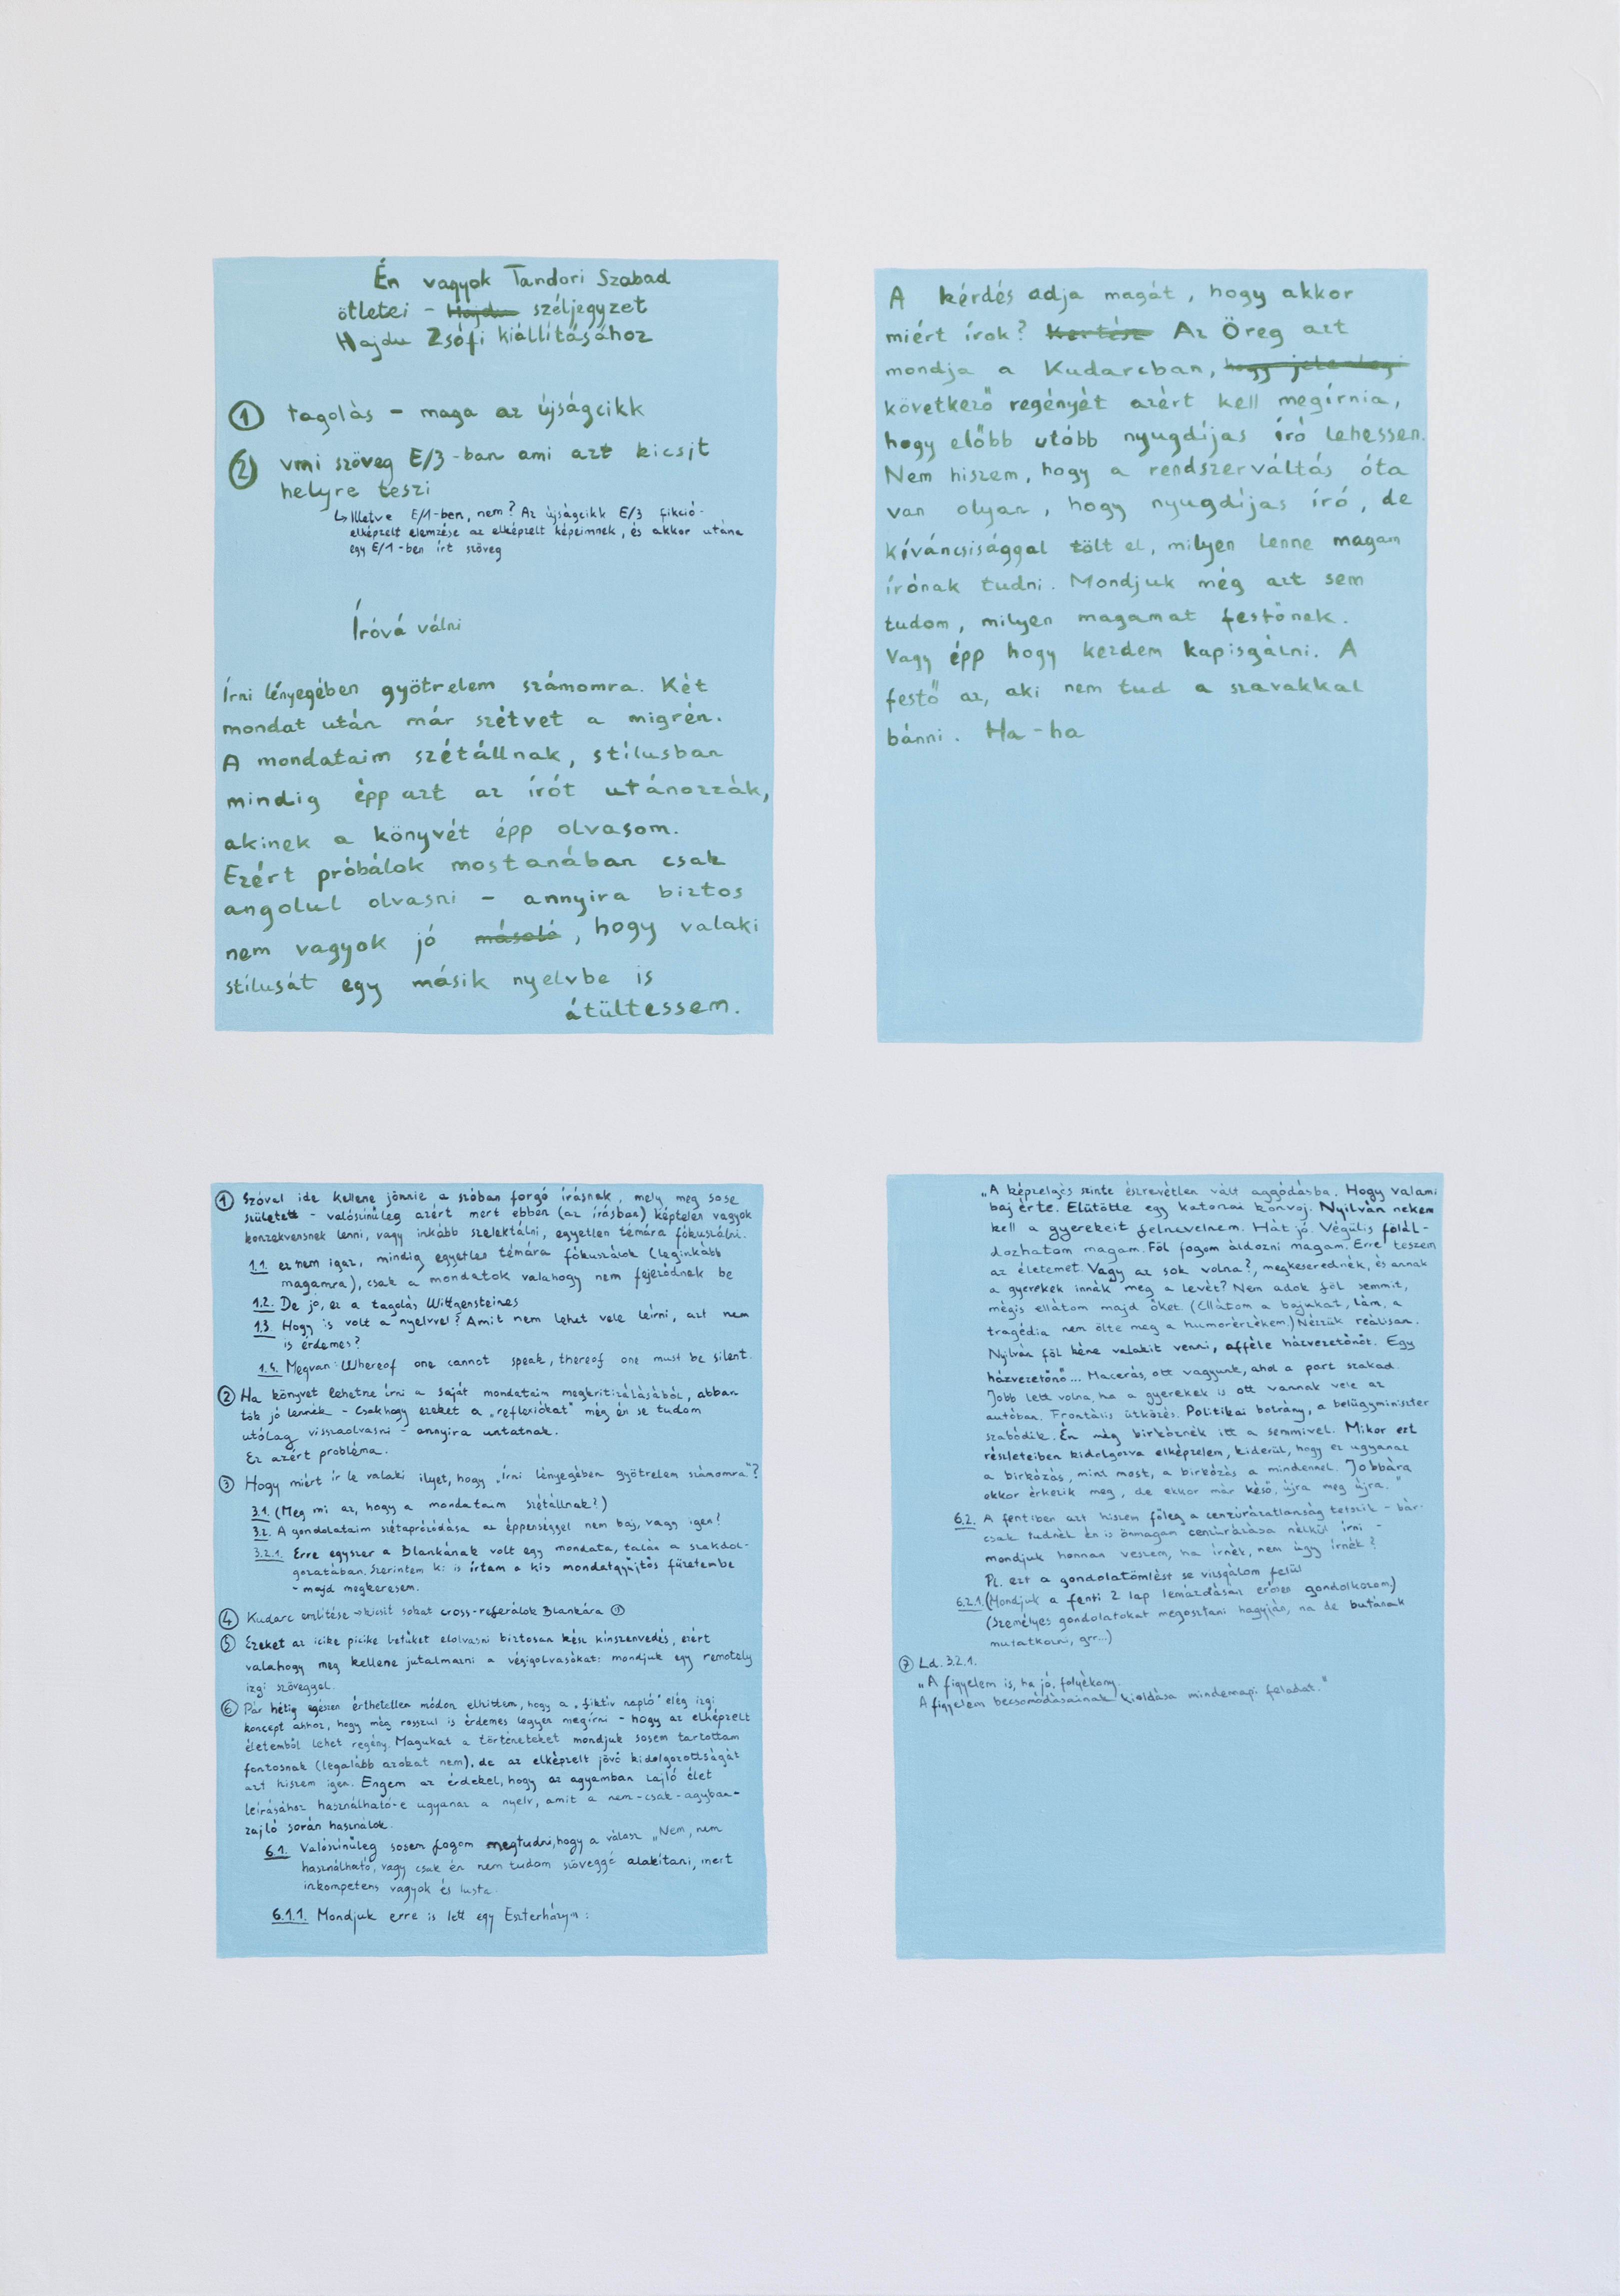 Én vagyok Tandori Szabad
ötletei - Hajdu széljegyzet
Hajdu Zsófi kiállításához
① tagolás - maga az újságcikk
② vmi szöveg E/3-ban ami azt kicsit
helyre teszi
↳ Illetve E/1-ben, nem? Az újságcikk E/3 fikció-
elképzelt elemzése az elképzelt képeimnek, és akkor utána
egy E/1-ben írt szöveg
Íróvá válni
Írni lényegében gyötrelem számomra. Két
mondat után már szétvet a migrén.
A mondataim szétállnak, stílusban
mindig épp azt az írót utánozzák,
akinek a könyvét épp olvasom.
Ezért próbálok mostanában csak
angolul olvasni - annyira biztos
nem vagyok jó másoló, hogy valaki
stílusát egy másik nyelvbe is
átültessem.
A kérdés adja magát, hogy akkor
miért írok? Kertész Az Öreg azt
mondja a Kudarcban, hogy jelenleg
következő regényét azért kell megírnia,
hogy előbb utóbb nyugdíjas író lehessen.
Nem hiszem, hogy a rendszerváltás óta
van olyan, hogy nyugdíjas író, de
kíváncsisággal tölt el, milyen lenne magam
írónak tudni. Mondjuk még azt sem
tudom, milyen magamat festőnek.
Vagy épp hogy kezdem kapisgálni. A
festő az, aki nem tud a szavakkal
bánni. Ha-ha
① Szóval ide kellene jönnie a szóban forgó írásnak, mely meg sose
született - valószínűleg azért mert ebben (az írásban) képtelen vagyok
konzekvensnek lenni, vagy inkább szelektálni, egyetlen témára fókuszálni.
1.1. ez nem igaz, mindig egyetlen témára fókuszálok (leginkább
magamra), csak a mondatok valahogy nem fejeződnek be
1.2. De jó, ez a tagolás Wittgensteines
1.3. Hogy is volt a nyelvvel? Amit nem lehet vele leírni, azt nem
is érdemes?
1.4. Megvan: Whereof one cannot speak, thereof one must be silent.
② Ha könyvet lehetne írni a saját mondataim megkritizálásából, abban
tök jó lennék - Csakhogy ezeket a „reflexiókat" még én se tudom
utólag visszaolvasni - annyira untatnak.
Ez azért probléma.
③ Hogy miért ír le valaki ilyet, hogy „Írni lényegében gyötrelem számomra"?
3.1. (Meg mi az, hogy a mondataim szétállnak?)
3.2. A gondolataim szétaprózódása az éppenséggel nem baj, vagy igen?
3.2.1. Erre egyszer a Blankának volt egy mondata, talán a szakdol-
gozatában. Szerintem ki is írtam a kis mondatgyűjtős füzetembe
- majd megkeresem.
④ Kudarc említése → kicsit sokat cross-referálok Blankára
⑤ Ezeket az icike picike betűket elolvasni biztosan kész kínszenvedés, ezért
valahogy meg kellene jutalmazni a végigolvasókat: mondjuk egy remotely
izgi szöveggel.
⑥ Pár hétig egészen érthetetlen módon elhittem, hogy a „fiktív napló" elég izgi
koncept ahhoz, hogy még rosszul is érdemes legyen megírni - hogy az elképzelt
életemből lehet regény. Magukat a történeteket mondjuk sosem tartottam
fontosnak (legalább azokat nem), de az elképzelt jövő kidolgozottságát
azt hiszem igen. Engem az érdekel, hogy az agyamban zajló élet
leírásához használható-e ugyanaz a nyelv, amit a nem-csak-agyban-
zajló során használok.
6.1. Valószínűleg sosem fogom megtudni, hogy a válasz „Nem, nem
használható, vagy csak én nem tudom szöveggé alakítani, mert
inkompetens vagyok és lusta.
6.1.1. Mondjuk erre is lett egy Eszterházym:
„A képzelgés szinte észrevétlen vált aggódásba. Hogy valami
baj érte. Elütötte egy katonai konvoj. Nyilván nekem
kell a gyerekeit felnevelnem. Hát jó. Végülis fölál-
dozhatom magam. Föl fogom áldozni magam. Erre teszem
az életemet. Vagy az sok volna?, megkeserednék, és annak
a gyerekek innák meg a levét? Nem adok föl semmit,
mégis ellátom majd őket. (Ellátom a bajukat, lám, a
tragédia nem ölte meg a humorérzékem.) Nézzük reálisan.
Nyilván föl kéne valakit venni, afféle házvezetőnőt. Egy
házvezetőnő... Macerás, ott vagyunk, ahol a part szakad.
Jobb lett volna, ha a gyerekek is ott vannak vele az
autóban. Frontális ütközés. Politikai botrány, a belügyminiszter
szabódik. Én meg birkóznék itt a semmivel. Mikor ezt
részleteiben kidolgozva elképzelem, kiderül, hogy ez ugyanaz
a birkózás, mint most, a birkózás a mindennel. Jobbára
ekkor érkezik meg, de ekkor már késő, újra meg újra."
6.2. A fentiben azt hiszem főleg a cenzúrázatlanság tetszik - bár-
csak tudnék én is önmagam cenzúrázása nélkül írni -
mondjuk honnan veszem, ha írnék, nem úgy írnék?
Pl. ezt a gondolatömlést se vizsgálom felül
6.2.1. (Mondjuk a fenti 2 lap lemázolásán erősen gondolkozom.)
(Személyes gondolatokat megosztani hagyján, na de butának
mutatkozni, grr...)
⑦ Ld. 3.2.1.
„A figyelem is, ha jó, folyékony.
A figyelem becsomódásainak kioldása mindennapi feladat."